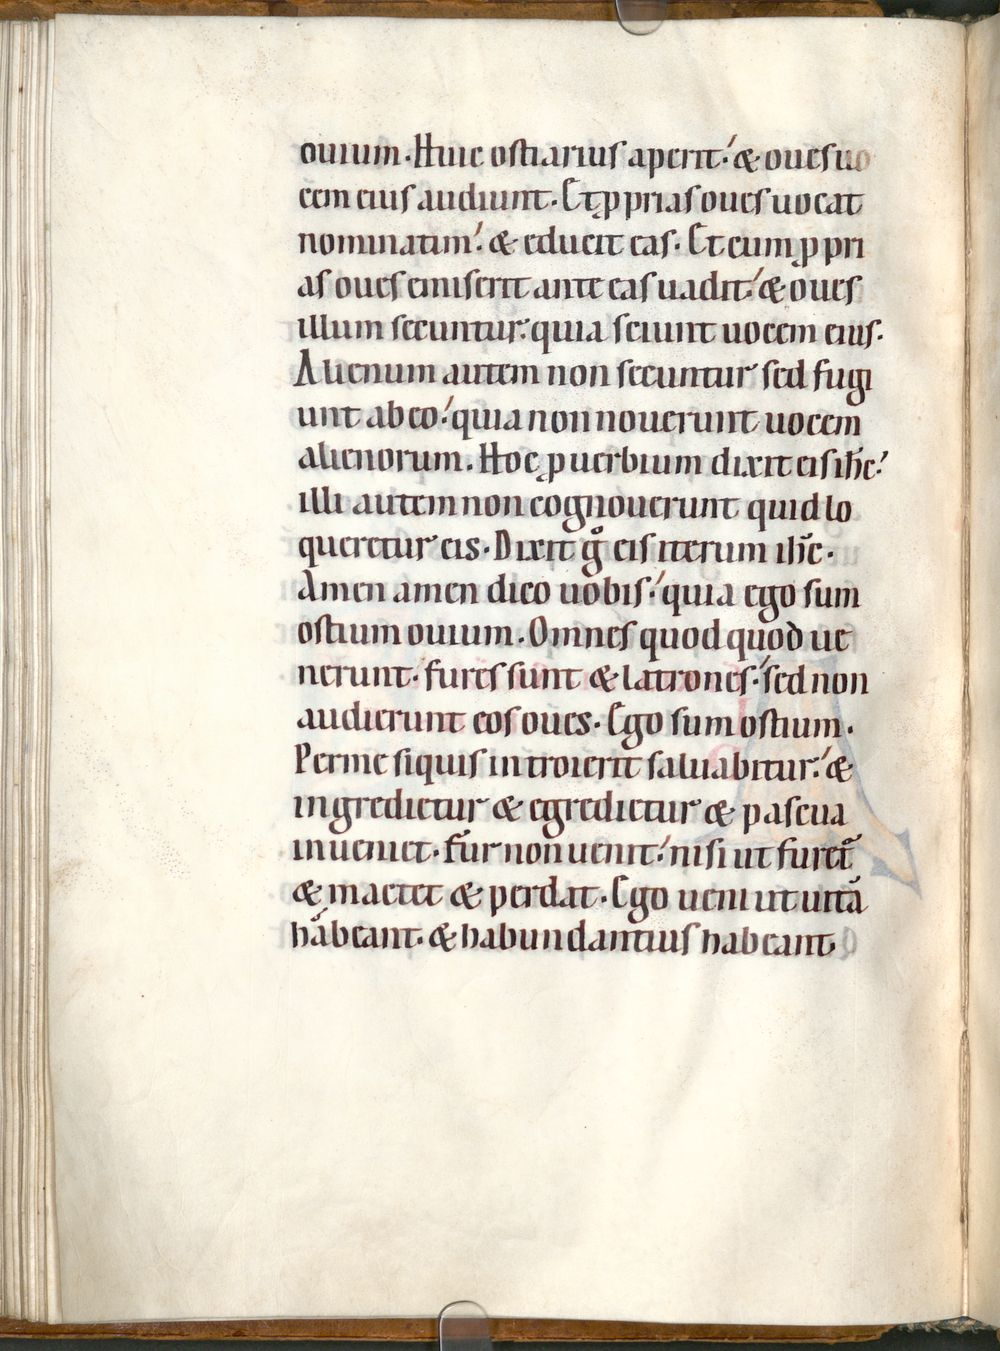 ouium. Huic ostiarius aperit: & oues uo
cem eius audiunt. Et ꝓprias oues uocat
nominatim: & educit eas. Et cum ꝓpri
as oues emiserit ante eas uadit: & oues
illum secuntur: quia sciunt uocem eius.
Alienum autem non secuntur sed fugi
unt ab eo: quia non nouerunt uocem
alienorum. Hoc ꝓuerbium dixit eis ih̅c:
illi autem non cognouerunt quid lo
queretur eis. Dixit gͦ eis iterum ih̅c.
Amen amen dico uobis: quia ego sum
ostium ouium. Omnes quod quod ue
nerunt. fures sunt & latrones: sed non
audierunt eos oues. Ego sum ostium.
Per me siquis introierit saluabitur: &
ingredietur & egredietur & pascua
inueniet. fur non uenit: nisi ut furet᷑
& mactet & perdat. Ego ueni ut uitā
habeant. & habundantius habeant.